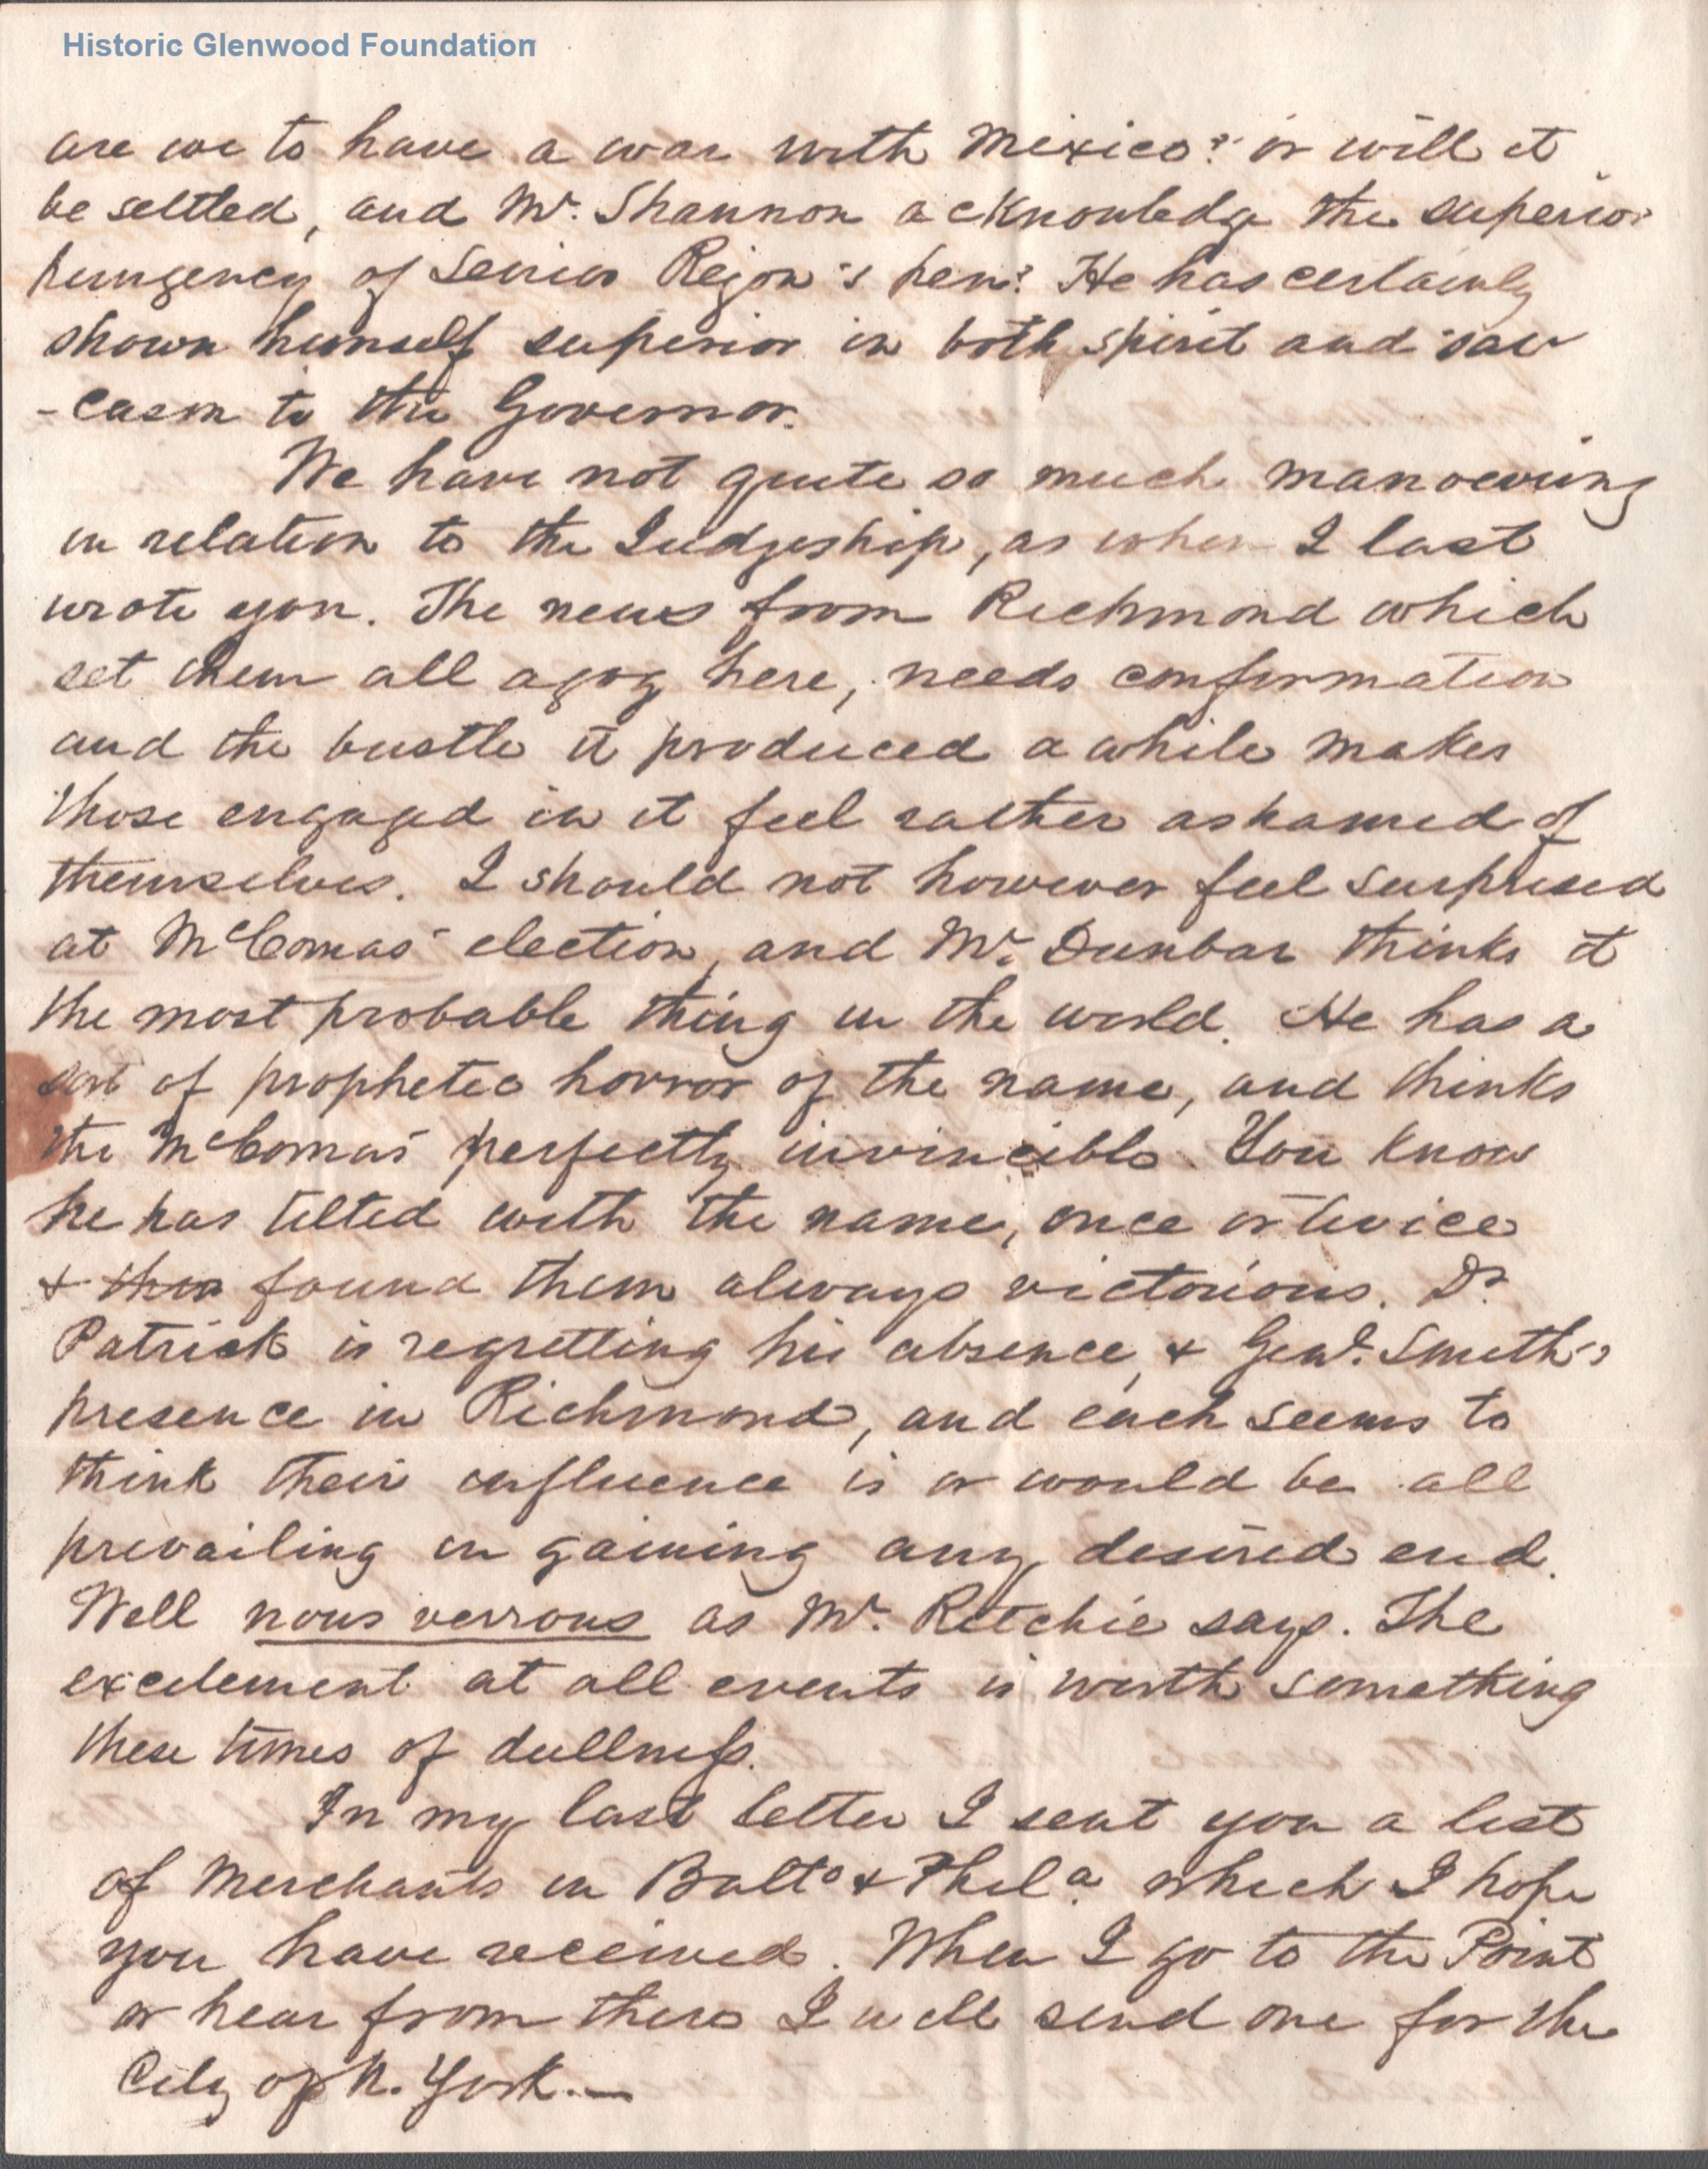 Historic Glenwood Foundation
are we to have a war with Mexico? or will it
be settled, and Mr. Shannon acknowledge the superior
pungency of Senior Rejon's pen? He has certainly
shown himself superior in both spirit and sar
-casm to the Governor.
We have not quite so much manoevring
in relation to the Judgeship, as when I last
wrote you. The news from Richmond which
set them all agog here, needs confirmation
and the bustle it produced a while makes
those engaged in it feel rather ashamed of
themselves. I should not however feel surprised
at McComas' election, and Mr. Dunbar thinks it
the most probable thing in the world. He has a
sort of prophetic horror of the name, and thinks
the McComas' perfectly invincible. You know
he has tilted with the name, once or twice
& then found them always victorious. Dr.
Patrick is regretting his absence, & Genl. Smith's
presence in Richmond, and each seems to
think their influence is or would be all
prevailing in gaining any desired end.
Well nous verrons as Mr. Ritchie says. The
excitement at all events is worth something
these times of dullness.
In my last letter I sent you a list
of Merchants in Balto & Phila. which I hope
you have received. When I go to the Point
or hear from there I will send one for the
City of N. York.—